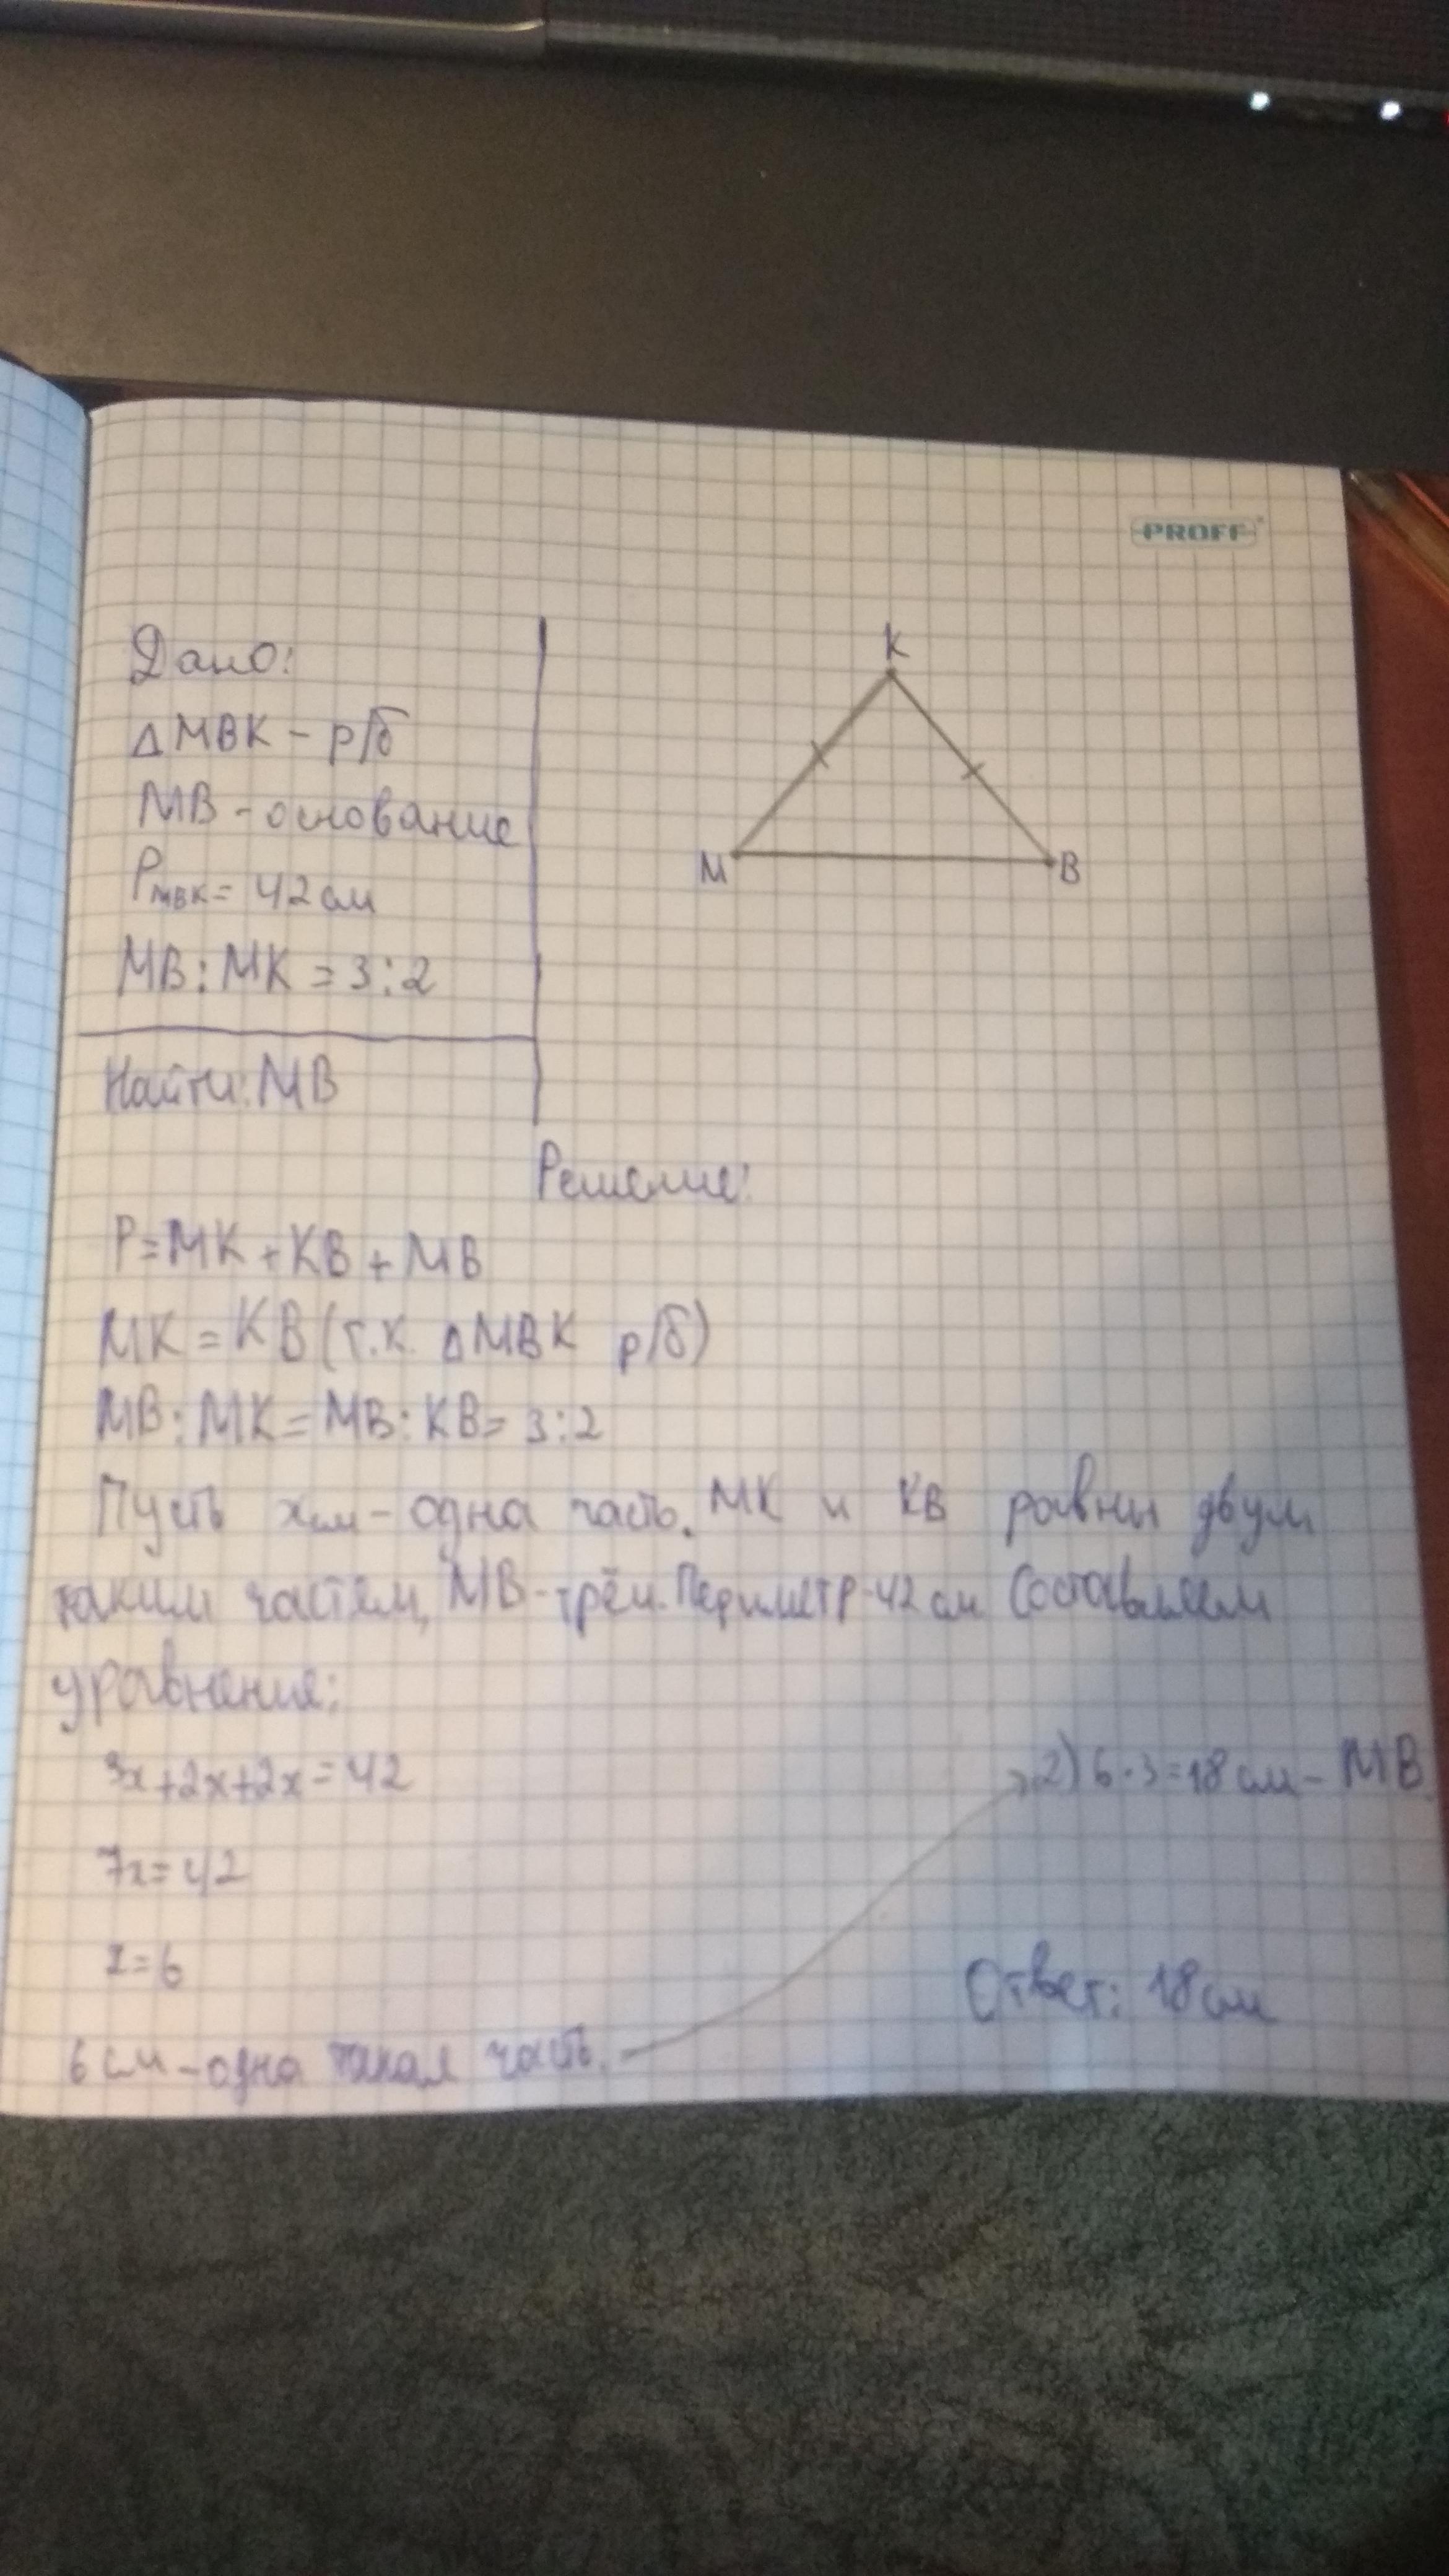 PROFF
Дано:
△MBK - р/б
MB - основание
PMBK = 42 см
MB : MK = 3 : 2
Найти: MB
K
M
B
Решение:
P = MK + KB + MB
MK = KB (т.к. △MBK р/б)
MB : MK = MB : KB = 3 : 2
Пусть x см - одна часть. MK и KB равны двум
таким частям, MB - трём. Периметр - 42 см. Составляем
уравнение:
3x + 2x + 2x = 42
7x = 42
x = 6
6 см - одна такая часть.
2) 6 · 3 = 18 см - MB
Ответ: 18 см